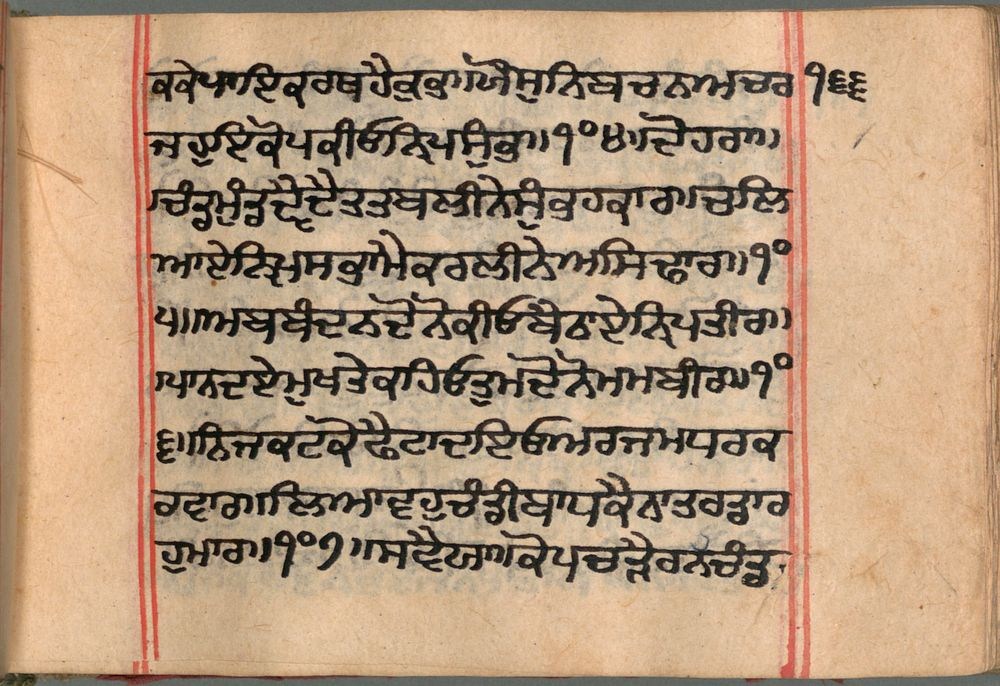 ਸੁਨਿਬਚਨਅਚਰ ੧੬੬
ਜਹੁਇਕੋਪਕੀਓਨ੍ਰਿਪਸੁੰਭ॥੧੦੪॥ਦੋਹਰਾ॥
ਚੰਡਮੁੰਡਦ੍ਵੈਦੈਤਤਬਲੀਨੇਸੁੰਭਹਕਾਰ॥ਚਲਿ
ਆਏਨ੍ਰਿਪਸਭਾਮੈਕਰਲੀਨੇਅਸਿਢਾਰ॥੧੦
੫॥ਅਬਬੰਦਨਦੋਨੋਕੀਓਬੈਠਾਏਨ੍ਰਿਪਤੀਰ॥
ਪਾਨਦਏਮੁਖਤੇਕਹਿਓਤੁਮਦੋਨੋਮਮਬੀਰ॥੧੦
੬॥ਨਿਜਕਟਕੋਫੈਟਾਦਇਓਅਰਜਮਧਰਕ
ਰਵਾਰ॥ਲਿਆਵਹੁਚੰਡੀਬਾਧਕੈਨਾਤਰਡਾਰ
ਹੁਮਾਰ॥੧੦੭॥ਸਵੈਯਾ॥ਕੋਪਚੜੈਰਨਚੰਡ